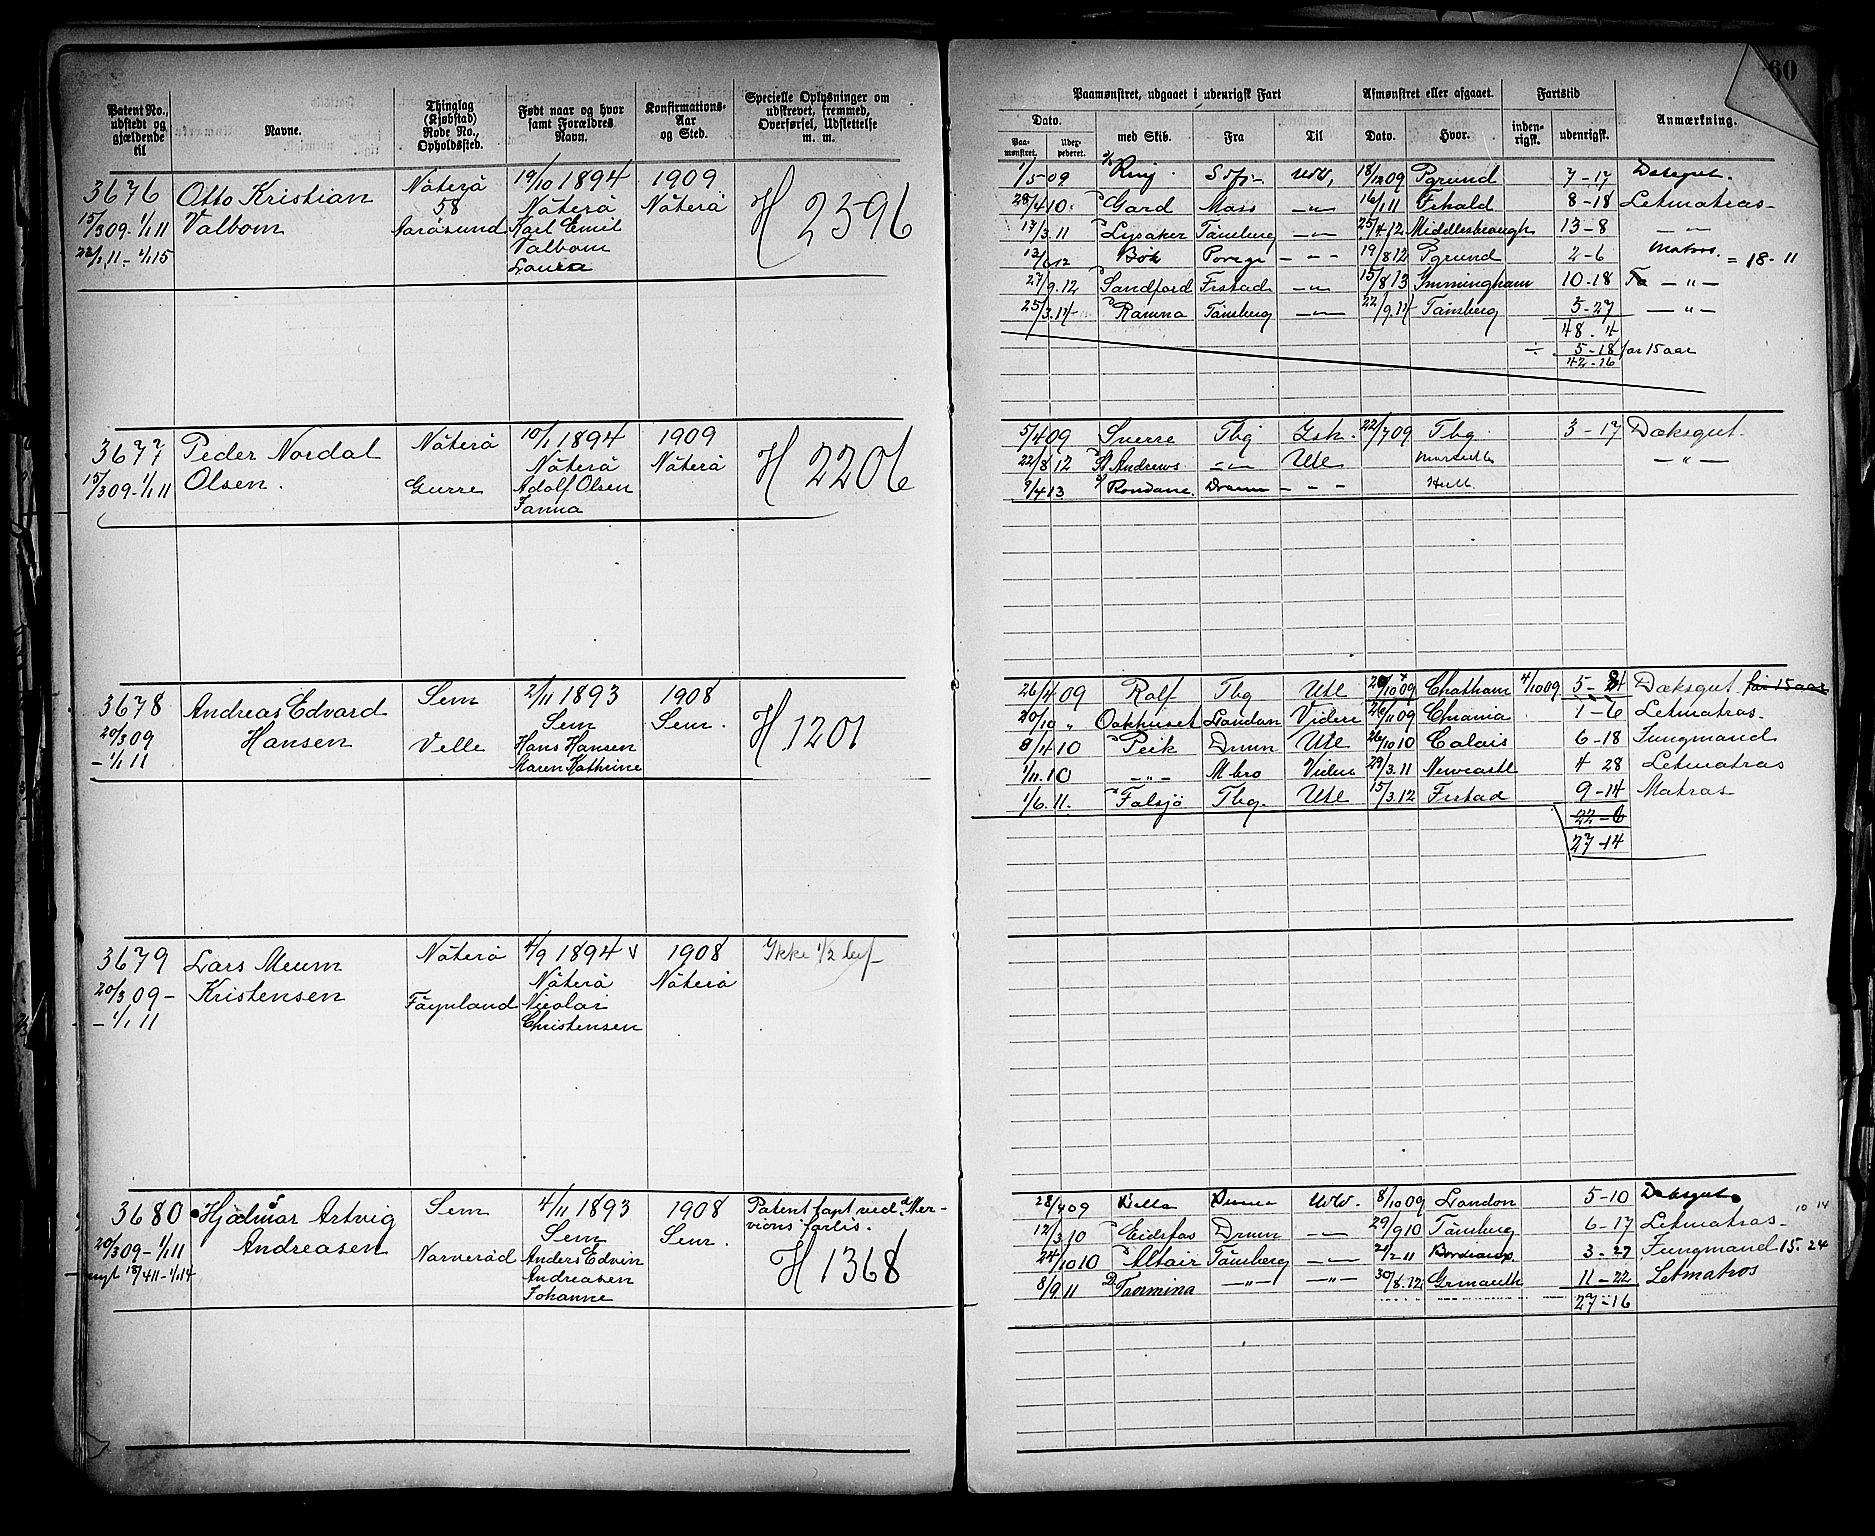 60
Patent No., udstedt og gjældende til
Navne.
Thinglag (Kjøbstad) Rode No., Opholdssted.
Født naar og hvor samt Forældres Navn.
Konfirmations-Aar og Sted.
Specielle Oplysninger om udskrevet, fremmed, Overførsel, Udslettelse m. m.
Paamønstret, udgaaet i udenrigsk Fart
Afmønstret eller afgaaet.
Fartstid
Anmærkning.
Dato.
Paamønstret.
med Skib.
Fra
Til
Dato.
Hvor.
indenrigsk.
udenrigsk.
3676 Otto Kristian Nøterø 19/10 1894 1909
15/3 09-1/1 11 Valbom 58 Nøterø Nøterø H 2596
Karl Emil
Valbom
Laura
1/5 09 Ring 18/12 09 Pgrund 7-17 Deksgut.
28/4 10. Gard Moss -"- 16/1 11 Frhald 8-18 Letmatros
17/3.11 Lysaker Tønsberg -"- 25/4.12 Middlesbrough 13-8 -"-
12/6 12 Bøk Porsgr -"- 19/8 12 Pgrund 2-6 Matros. = 18-11
27/9.12 Sandford Frstad -"- 15/8 13 Immingham 10-18 -"-
25/3.14 Ramna Tønsberg -"- 22/9.14 Tønsberg 5-27 -"-
48-4
÷ 5-18 før 15 aar
42-16
3677 Peder Nordal Nøterø 10/1 1894 1909
15/3 09-1/1 11 Olsen. Gurre Nøterø Nøterø H 2206
Adolf Olsen
Fanna
5/4 09 Sverre Tbg 22/7 09 Tbg. 3-17 Dæksgut.
22/8 12 St Andrews -"- Utl -"-
9/4 13 Rondane Dramn -"- Hull
3678 Andreas Edvard Sem 2/11 1893 1908
20/3 09 Hansen Velle Sem Sem. H 1201
-1/1 11 Hans Hansen
Maren Kathrine
26/4 09 Rolf Tbg Utl Chatham 4/10 09 Dæksgut før 15 aar
20/10 " Oakhurst London Videre 26/11 09 Chrania 1-6 Letmatros
8/4 10 Peik Drmn Utl 26/10 10 Calais 6-18 Jungmand
1/11.10 -"- Mbro Videre 29/3.11 Newcastl 4 28 Letmatros
1/6.11. Falsjø Tbg. Utl 15/3.12 Frstad 9-14 Matros
22-6
27-14
3679 Lars Meum Nøterø 4/9 1894 1908 Ikke 1/2
20/3 09- Kristensen Føynland Nøterø Nøterø
-1/1 11 Nicolai
Christensen
3680 Hjalmar Artvig Sem 4/11 1893 1908 Patent tapt ved "Mer-
20/3 09-1/1 11 Andreasen Narverød Sem Sem. vions" forlis.
nyt 18/4 11-1/1 14 Anders Edvin H 1368
Andreasen
Johanne
28/4 09 8/10 09 London 5-10 Deksgut
12/3 10 Eidsfos Drmn -"- 29/9 10 Tønsberg 6-17 Letmatros 10 14
24/10 10 Altair Tønsberg -"- 21/2 11 Bordeaux 3-27 Jungmand 15.24
8/9 11 Taormina -"- -"- 30/8.12 Grmouth 11-22 Letmatros
27-16